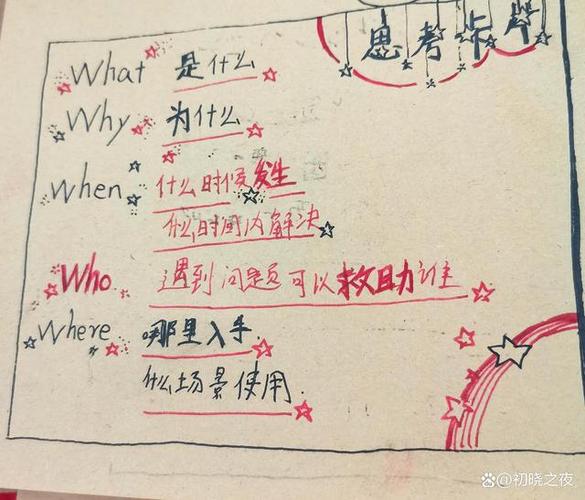 思考卡片
What 是什么
Why 为什么
when 什么时候发生
什么时间内解决
Who 遇到问题可以救助谁
where 哪里入手
什么场景使用.
@初晓之夜